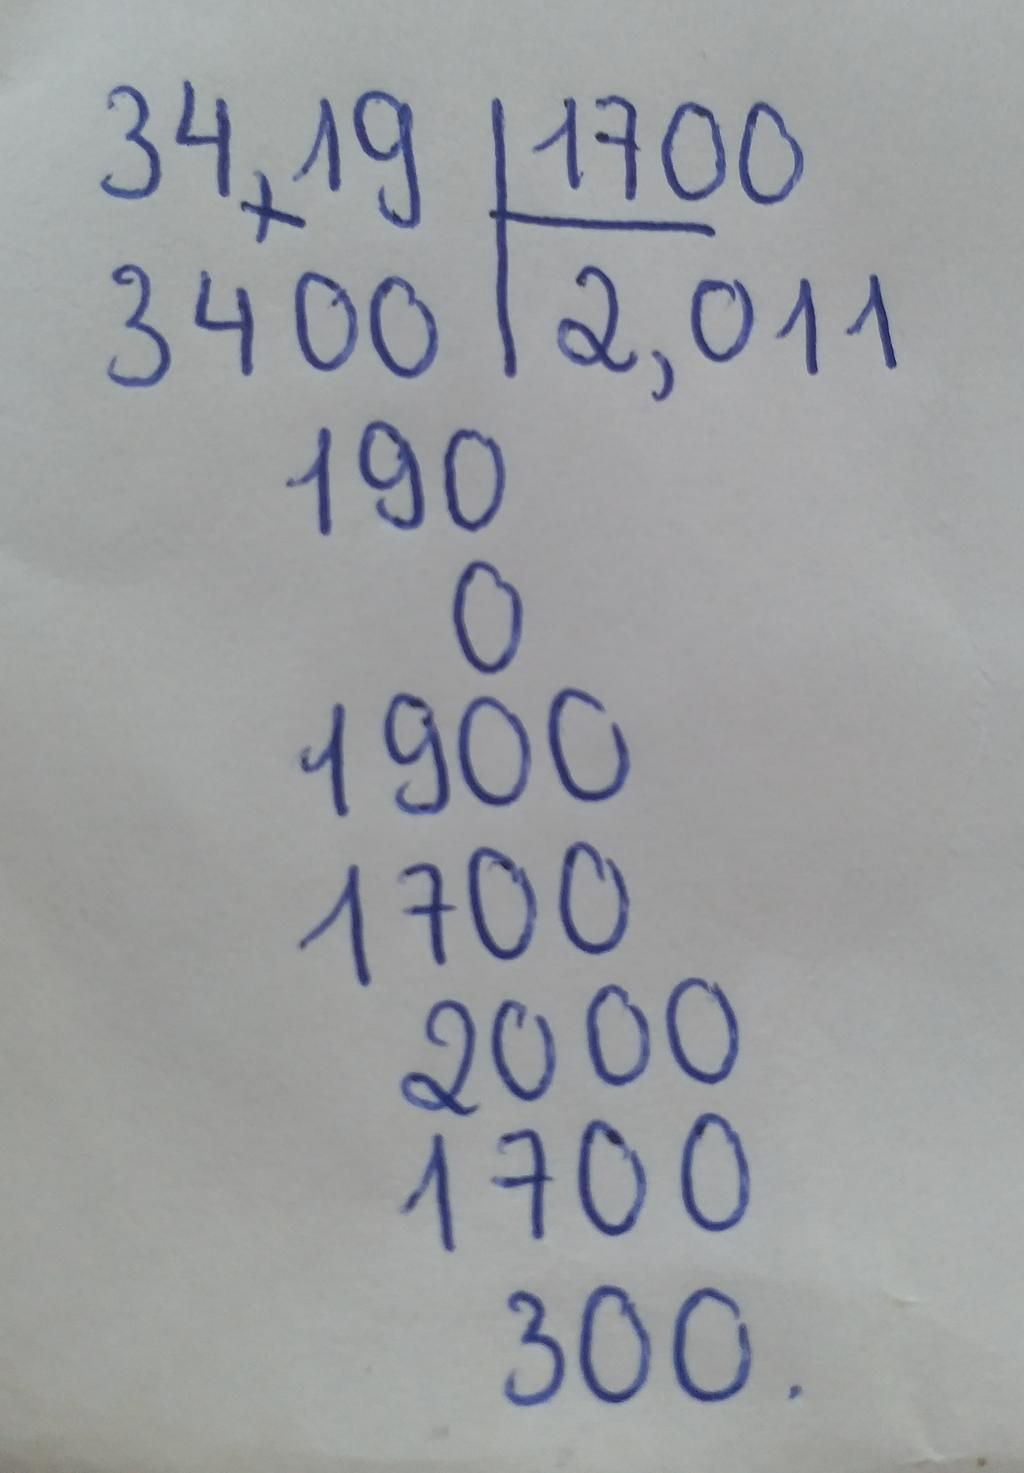 34,19 1700
3400 2,011
190
0
1900
1700
2000
1700
300.